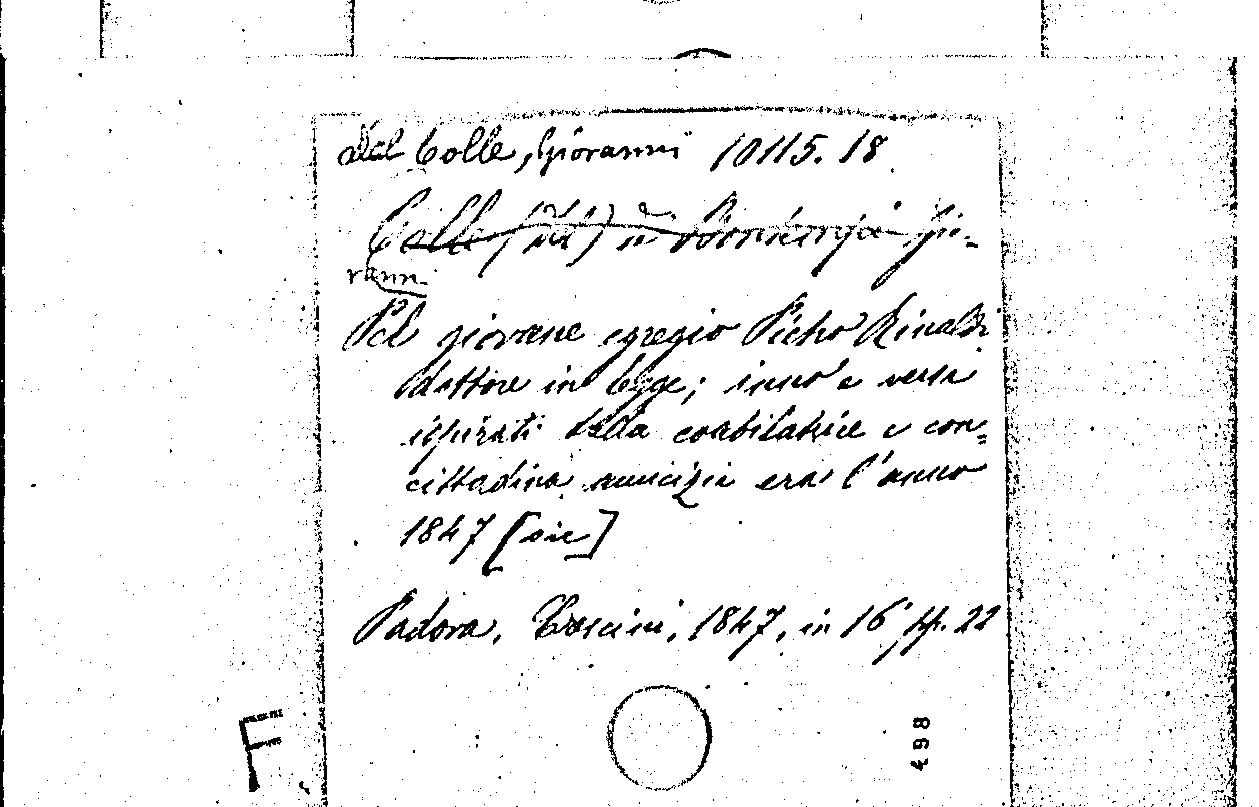 Dal Colle, Giovanni 10115.18
Colle (dal) Gio-
vanni
Pel giovane egregio Pietro Rinaldi
dottore in legge; inno e versi
ispirati dalla coabitatrice e con-
cittadina amicizia era l'anno
1847 [sic]
Padova, 1847, in 16 pp. 22
F.
498